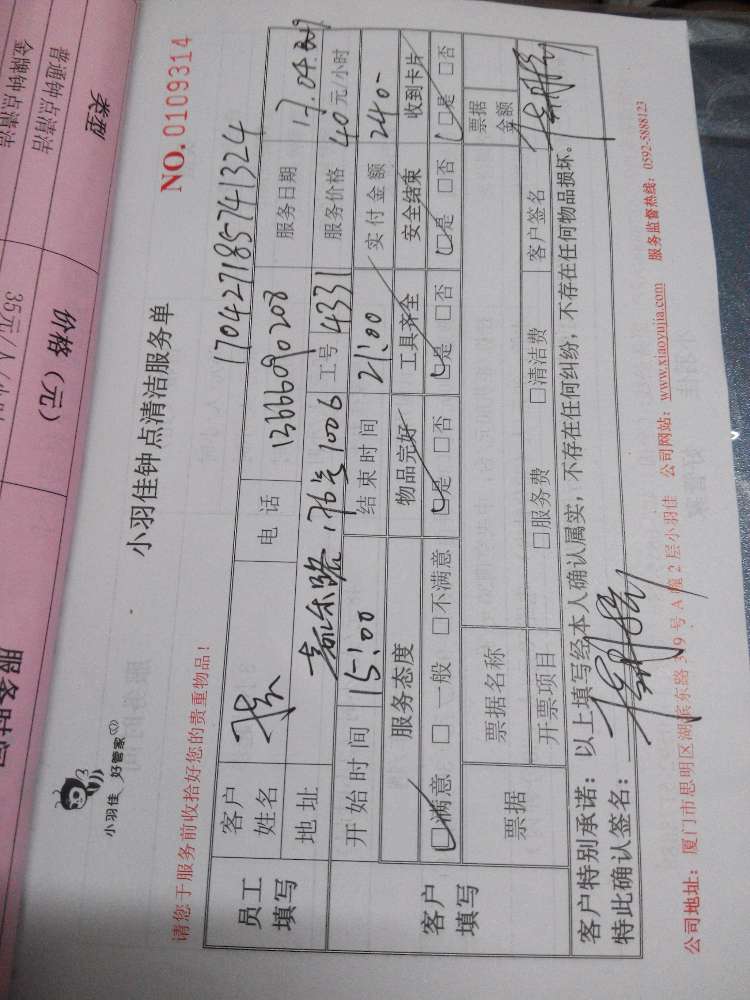 小羽佳
好管家
小羽佳钟点清洁服务单
NO.0109314
请您于服务前收拾好您的贵重物品！
170427185741324
员工填写
客户姓名
电话 13666090208
服务日期 17.04.29
地址
1006
工号 4331
服务价格 40元/小时
开始时间 15:00
结束时间 21:00
实付金额 240-
客户填写
服务态度
物品完好
工具齐全
安全结束
收到卡片
□满意 □一般 □不满意
□是 □否
□是 □否
□是 □否
□是 □否
票据
票据名称
票据金额
开票项目
□服务费
□清洁费
客户签名
客户特别承诺：以上填写经本人确认属实，不存在任何纠纷，不存在任何物品损坏。
特此确认签名：
公司地址：厦门市思明区湖滨东路319号A幢2层小羽佳 公司网站：www.xiaoyujia.com 服务监督热线：0592-5888123
类型
价格（元）
服务时间
普通钟点清洁
金牌钟点清洁